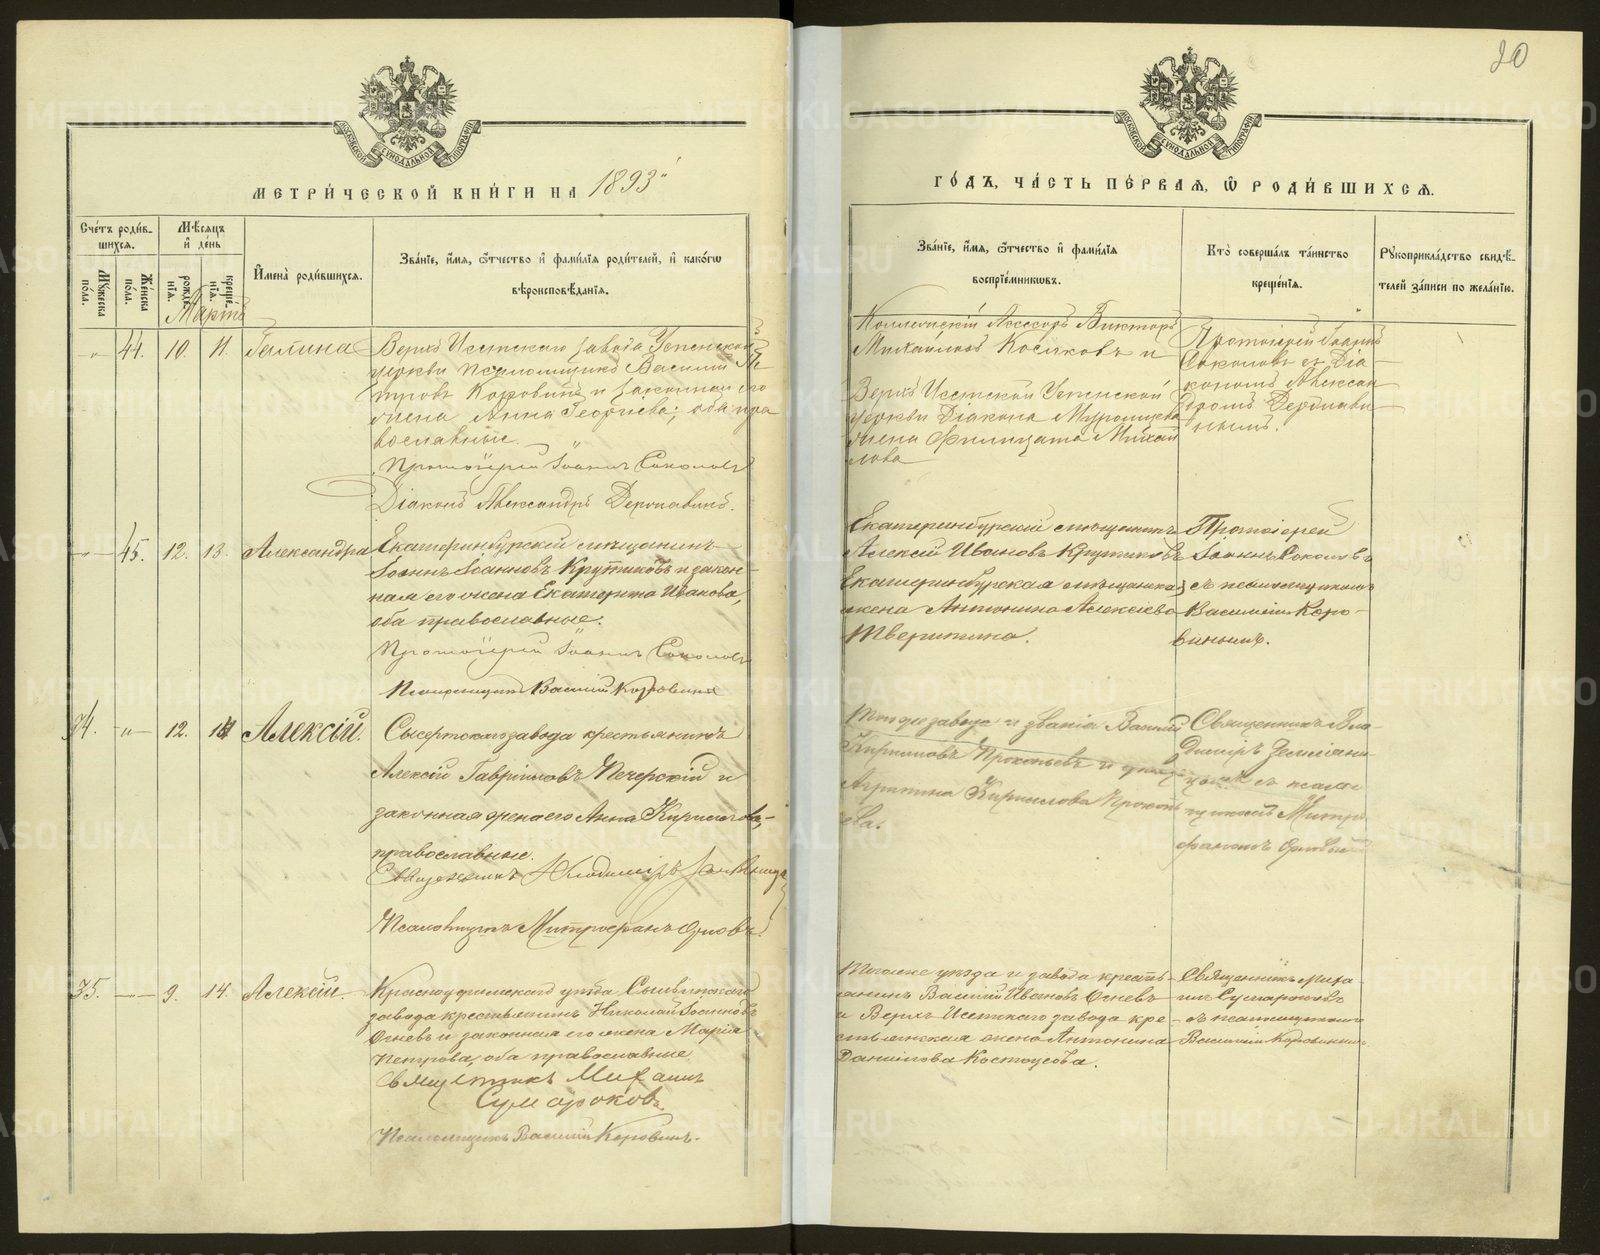 20
МЕТРИ́ЧЕСКОЙ КНИ́ГИ НА 1893
ГО́ДЪ, ЧА́СТЬ ПЕ́РВАЯ, Ѿ РОДИ́ВШИХСЯ.
МОСКОВСКОЙ СѴНОДАЛЬНОЙ ТИПОГРАФІИ
МОСКОВСКОЙ СѴНОДАЛЬНОЙ ТИПОГРАФІИ
Сче́тъ роди́в-
шихся.
Мꙋжеска по́ла.
Же́нска по́ла.
Мѣ́сяцъ
и҆ де́нь
рожде́нія.
креще́нія.
И҆мена̀ роди́вшихся.
Зва́ніе, и҆́мя, ѻ҆́тчество и҆ фами́лія роди́телей, и҆ како́гѡ
вѣроисповѣ́данія.
Зва́ніе, и҆́мя, ѻ҆́тчество и҆ фами́лія
воспріе́мникѡвъ.
Кто̀ соверша́лъ та́инство
креще́нія.
Рꙋкоприкла́дство свидѣ́-
телей за́писи по жела́нію.
Марта
" 44. 10. 11. Галина
Верхъ Исетскаго завода Успенской
церкви псаломщикъ Василій Пе-
тровъ Коровинъ и законная его
жена Анна Георгіева; оба пра
вославные.
Протоіерей Іоаннъ Соколовъ
Діаконъ Александръ Державинъ.
Коллежскій Ассесоръ Викторъ
Михайловъ Косяковъ и
Верхъ Исетской Успенской
церкви Діакона Муромцева
жена Филицата Михай
лова
Протоіерей Іоаннъ
Соколовъ съ Діа
кономъ Алексан
дромъ Держави-
нымъ.
" 45. 12. 13. Александра
Екатеринбургскій мѣщанинъ
Іоаннъ Іоанновъ Крутиковъ и закон-
ная его жена Екатерина Иванова,
оба православные.
Протоіерей Іоаннъ Соколовъ
Псаломщикъ Василій Коровинъ
Екатеринбургскій мѣщанинъ
Алексій Ивановъ Крутиковъ
Екатеринбургская мѣщанка
жена Антонина Алексіева
Тверитина.
Протоіерей
Іоаннъ Соколовъ
съ псаломщикомъ
Василіемъ Коро-
винымъ.
34. " 12. 14 Алексій.
Сысертскаго завода крестьянинъ
Алексій Гавріиловъ Печерскій и
законная жена его Анна Кириллова,
православные.
Священникъ Владиміръ
Псаломщикъ Митрофанъ Орловъ.
Того же завода и званія Василій
Кирилловъ Прокопьевъ и
Агрипина Кириллова Прокопь
ева.
Священникъ Вла-
диміръ
съ псалом
щикомъ Митро-
фаномъ Орловым
35. " 9. 14. Алексій.
Красноуфимскаго уѣзда Сылвинскаго
завода крестьянинъ Николай Іоанновъ
Огневъ и законная его жена Марія
Петрова, оба православные
Священникъ Михаилъ
Сумароковъ.
Псаломщикъ Василій Коровинъ.
Того же уѣзда и завода кресть-
янинъ Василій Ивановъ Огневъ
и Верхъ Исетскаго завода кре-
стьянская жена Антонина
Данилова Костоусова.
Священникъ Миха-
илъ Сумароковъ
съ псаломщикомъ
Василіемъ Коровинымъ.
METRIKI.GASO-URAL.RU